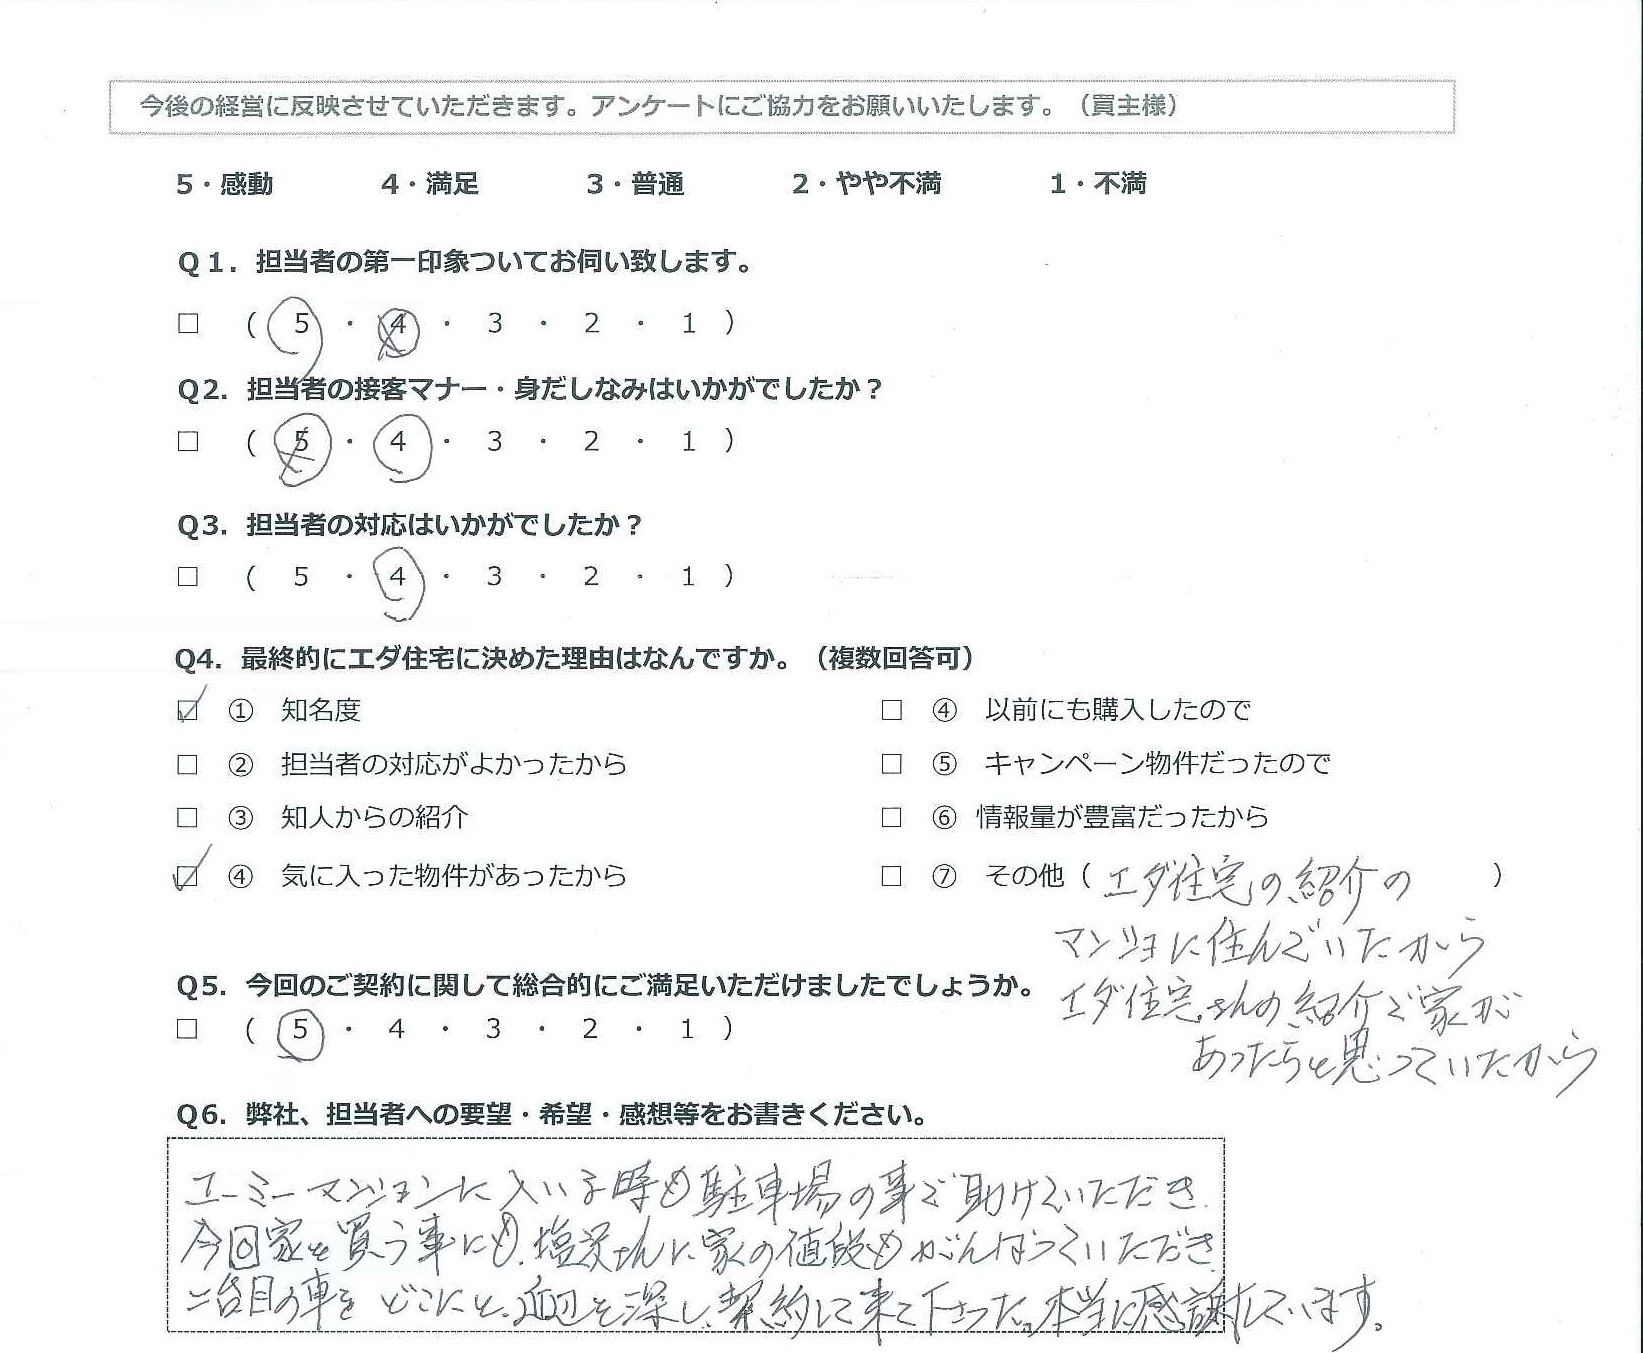 今後の経営に反映させていただきます。アンケートにご協力をお願いいたします。（買主様）
5・感動 4・満足 3・普通 2・やや不満 1・不満
Q1．担当者の第一印象ついてお伺い致します。
□ （ 5 ・ 4 ・ 3 ・ 2 ・ 1 ）
Q2．担当者の接客マナー・身だしなみはいかがでしたか？
□ （ 5 ・ 4 ・ 3 ・ 2 ・ 1 ）
Q3．担当者の対応はいかがでしたか？
□ （ 5 ・ 4 ・ 3 ・ 2 ・ 1 ）
Q4．最終的にエダ住宅に決めた理由はなんですか。（複数回答可）
☑ ① 知名度
□ ② 担当者の対応がよかったから
□ ③ 知人からの紹介
☑ ④ 気に入った物件があったから
□ ④ 以前にも購入したので
□ ⑤ キャンペーン物件だったので
□ ⑥ 情報量が豊富だったから
□ ⑦ その他（ エダ住宅の紹介の ）
マンショに住んでいたから
エダ住宅さんの紹介で家が
あったらと思っていたから
Q5．今回のご契約に関して総合的にご満足いただけましたでしょうか。
□ （ 5 ・ 4 ・ 3 ・ 2 ・ 1 ）
Q6．弊社、担当者への要望・希望・感想等をお書きください。
エーミーマンションに入いる時も駐車場の事で助けていただき.
今回家を買う事にも、さんに家の値段もがんばっていただき
二台目の車をどこにと、近辺を深し、契約して来て下さった。本当に感謝しています。